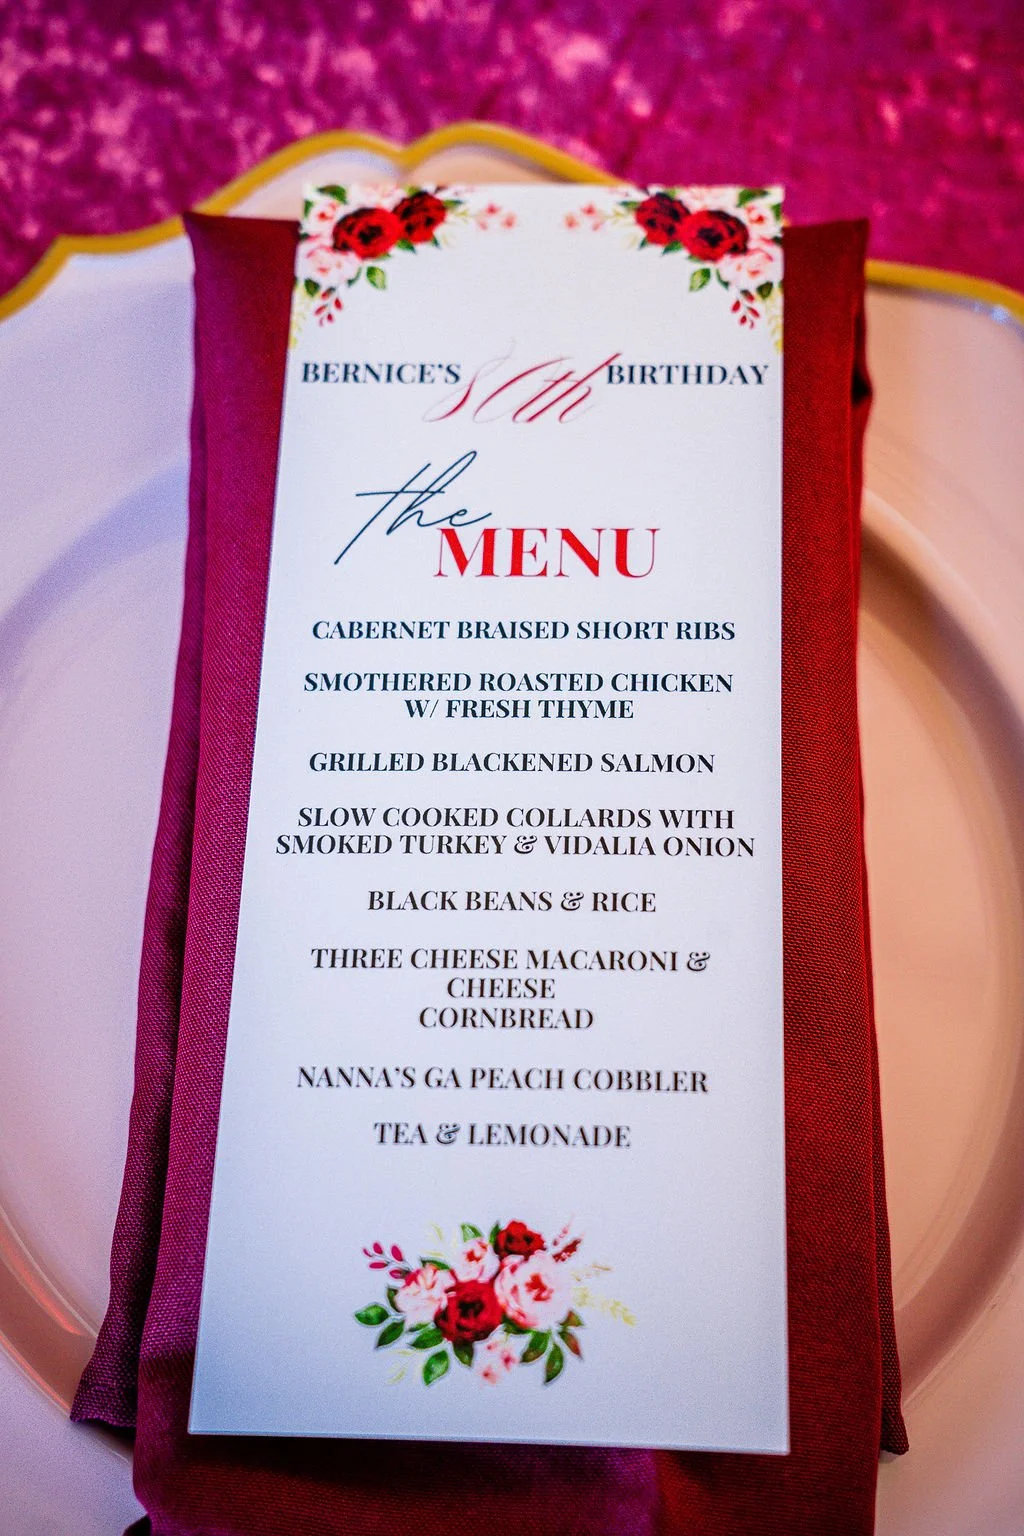 BERNICE'S 80th BIRTHDAY
the
MENU
CABERNET BRAISED SHORT RIBS
SMOTHERED ROASTED CHICKEN
W/ FRESH THYME
GRILLED BLACKENED SALMON
SLOW COOKED COLLARDS WITH
SMOKED TURKEY & VIDALIA ONION
BLACK BEANS & RICE
THREE CHEESE MACARONI &
CHEESE
CORNBREAD
NANNA'S GA PEACH COBBLER
TEA & LEMONADE